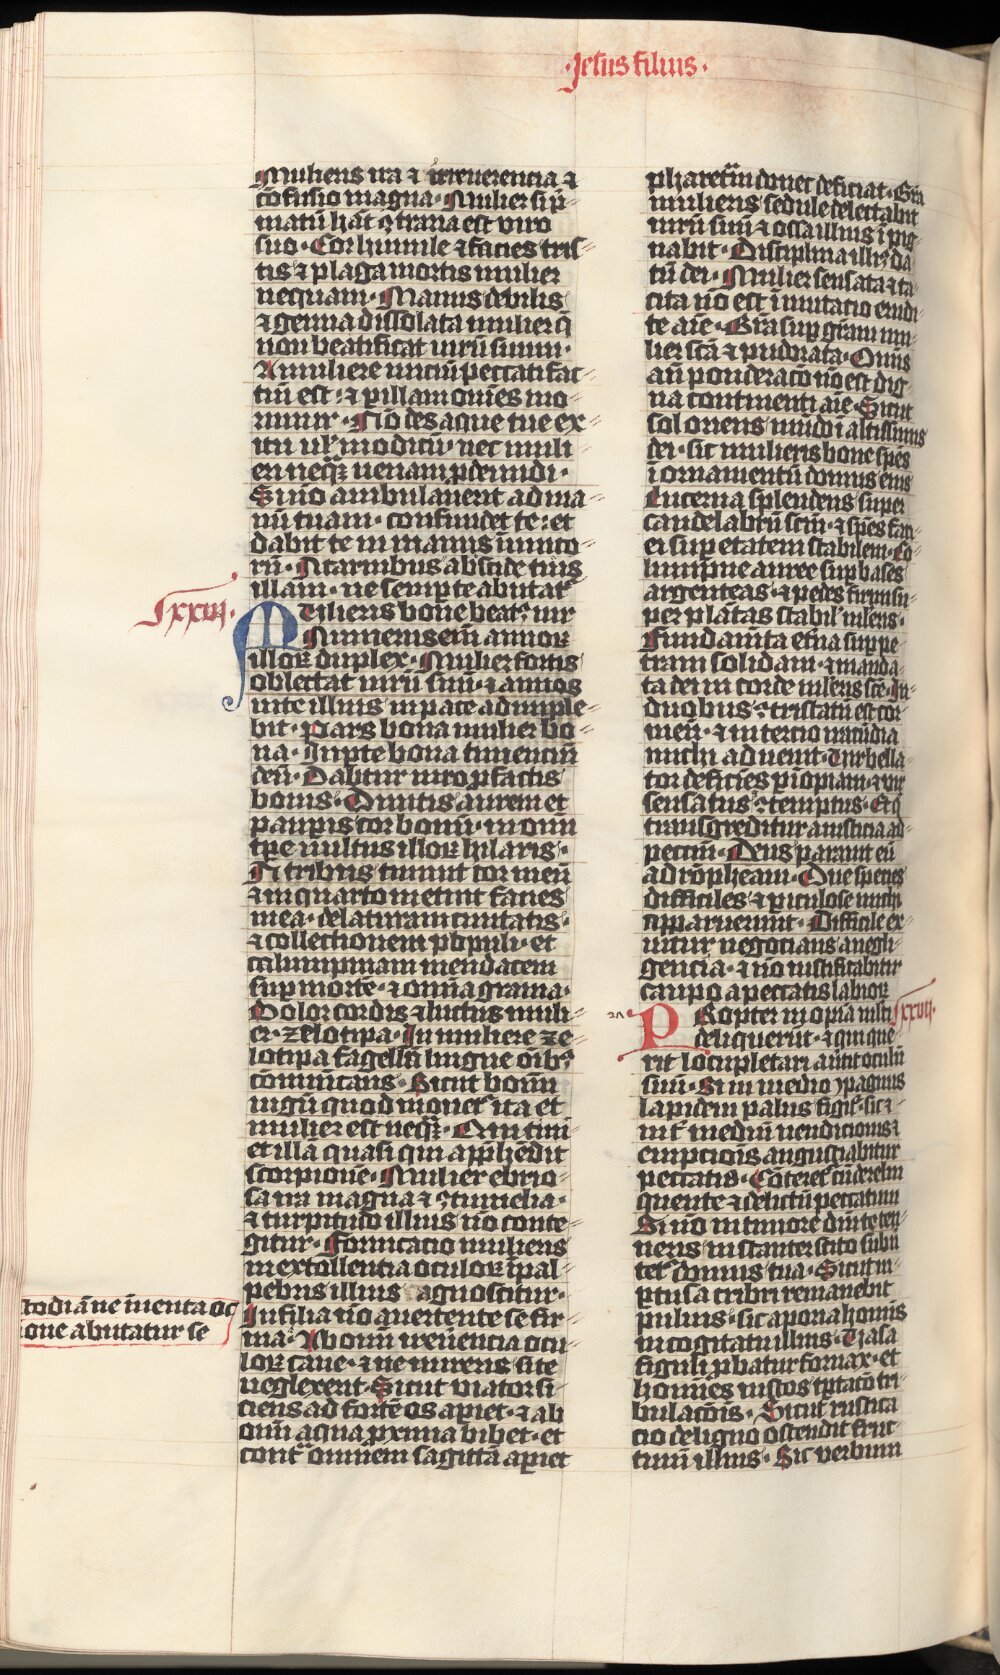 ·Jesus filius·
Mulieris ira ⁊ irreuerencia ⁊
cōfusio magna· Mulier si p̄i
matū hāt ꝯtraria est viro
suo· Cor humile ⁊ facies tris
tis ⁊ plaga mortis mulier
nequam· Manus debilis
⁊ genua dissolata mulier q̄
non beatificat uirū suum·
A muliere iniciū peccati fac
tū est· ⁊ p illam om̄es mo
rimur· Nō des aque tue ex
itū ul̛ modicū· nec muli
eri neqꝫ ueniam pdeundi·
Si nō ambulauerit ad ma
nū tuam· confundet te: et
dabit te in manus inimico
rū· A carnibus abscide tuis
illam· ne semp te abutat᷑
xxvi·
Mulieris bone beat⁹ uir
Numerus em̄ annoꝝ
illoꝝ duplex· Mulier fortis
oblectat uirū suū· ⁊ annos
uite illius in pace ad imple
bit· Pars bona mulier bo
na· In pte bona timenciū
deū· Dabitur uiro p factis
bonis· Diuitis autem et
paupis cor bonū· in om̄i
tpe uultus illoꝝ hilaris·
A tribus timuit cor meū
⁊ in quarto metuit facies
mea· delaturam ciuitatis·
⁊ collectionem ppuli· et
calumpniam mendacem
sup morte· ⁊ om̄ia grauia·
Dolor cordis ⁊ luctus muli
er· zelotipa· In muliere ze
lotipa flagellū lingue oīb⁹
cōmunicans· Sicut bouū
iugū quod mouet᷑ ita et
mulier est neqꝫ· Qui tenet
et illā quasi qui app̄hendit
scorpionē· Mulier ebrio
sa ira magna ⁊ ꝯtumelia·
⁊ turpitudo illius nō conte
gitur· Fornicacio mulieris
in extollentia oculoꝝ ⁊ ī pal
pebris illius agnoscitur·
In filia nō auertente se fir
ma· Ab om̄i ireuerencia ocu
loꝝ caue· ⁊ ne mireris si te
neglexerit· Sicut viator si
ciens ad fontē os apiet· ⁊ ab
om̄i aqua pxima bibet· et
cont̄ omnem sagittā apiet
todiā ne inuenta oc
one abutatur se
pharetrā donec deficiat· Grā
mulieris sedule delectabit
uirū suū ⁊ ossa illius ī pig
nabit· Disciplina illi⁹ da
tū dei· Mulier sensata ⁊ ta
cita nō est ī mutatio erudi
te aīe· Grā sup grām mu
lier scā ⁊ pudorata· Om̄is
aū ponderacō nō est dig
na continenti aīe· Sicut
sol oriens mūdo ī altissimis
dei· sic mulieris bone spēs
ī ornamentū domus eius
Lucerna splendens super
candelabrū scm̄· ⁊ spēs faci
ei sup etatem stabilem· Co
lumpne auree sup bases
argenteas· ⁊ pedes firmi su
per plātas stabil̛ mlieris·
Fundamīta et̄na supra pe
tram solidam· ⁊ manda
ta dei in corde mlieris scē· In
duobus ꝯtristatū est cor
meū· ⁊ in tercio iracūdia
michi aduenit· Uir bella
tor deficies p ïopiam· ⁊ vir
sensatus ꝯtemptus· Et q
transgreditur a iusticia ad
peccm̄· Deus parauit eū
ad rōpheam· Due species
difficiles ⁊ piculose michi
apparuerunt· Difficile ex
uitur negotians a negli
gencia· ⁊ nō iustificabitur
caupo a peccatis labioꝝ
xxvii·
Propter inopiā m̄lti
deliquerūt· ⁊ qui que
rit locupletari auertit oculū
suū· Si in medio ꝯpaginis
lapidem palus figit᷑· sic ⁊
int̄ mediū uendicionis ⁊
emptiois angustiabitur
peccatis· Cōteret᷑ cū derelin
quente ⁊ delictū peccatum
Si nō in timore dn̄i te ten
ueris instanter· cito subu
tet᷑ domus tua· Sicut in
ptusa cribri remanebit
puluis· sic aporia hoīnis
in cogitatu illius· Uasa
figuli pbatur fornax· et
homines iustos tptacō tri
bulacōis· Sicut rustica
cio de ligno ostendit fruc
tum illius· Sic verbum